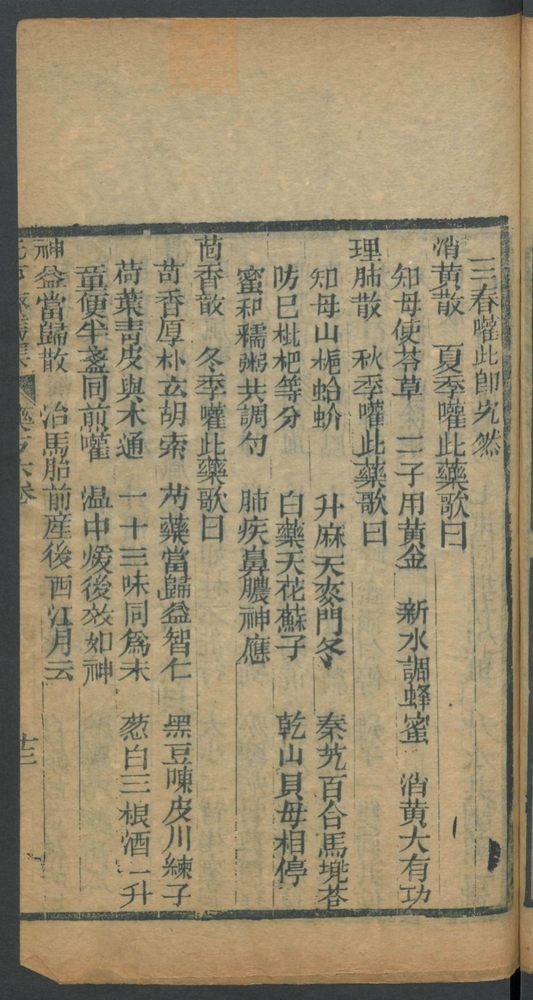 三春嚾此卽
消黃散　夏季嚾此藥歌曰
知母使荅草　二子用黃金　新水調蜂蜜　消黃大有功
理肺散　秋季嚾此藥歌曰
知母山梔蛤蚧　升麻天麥門冬　秦艽百合馬兠苓
防巳枇杷等分　白藥天花蘇子　乾山貝母相停
蜜和糯粥共調勻　肺疾鼻膿神應
茴香散　冬季嚾此藥歌曰
茴香厚朴玄胡索　芍藥當歸益智仁　黑豆陳皮川練子
荷葉青皮與木通　一十三味同爲末　葱白三根酒一升
童便半盞同煎嚾　温中煖後效如神
神益當歸散　治馬胎前産後西江月云
卷